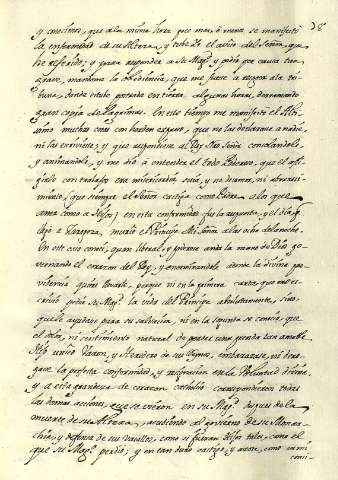 58
y conocimos, que a la misma hora poco mas, ò menos se manifestò
la enfermedad de su Alteza, y tube Yo el aviso del Señor, que
he referido; y para responder a Su Mag.d y pedir por causa tan
grave, mandome la obediencia, que me fuese a rezar a la tri
buna, donde estube postrada en tierra algunas horas, derramando
gran copia de lagrimas. En este tiempo me manifestò el Altis
simo muchas cosas con horden expreso, que no las declarase a nadie,
ni las escriviese; y que respondiese al Rey Nro Señor consolandole,
y animandole, y me diò à entender el todo Poderoso, que el afli
girle con trabajos era misericordia suia, y no desamor, ni aborreci
miento, que siempre el Señor castiga como Padre a los que
ama como a Hijos; en esta conformidad fue la respuesta, y el dia que
llegò a Zaragoza, murió el Principe Nro Señor a las ocho de la noche.
En este caso conocí, quan liberal, y piadosa anda la mano de Dios go
vernando el corazon del Rey, y encaminandole adonde la divina pro
videncia quiere llevarle, porque ni en la primera carta que me es
crivió pedia su Mag.d la vida del Principe absolutamente, sino
que le ayudase para su salvacion, ni en la segunda se conocia, que
el dolor, ni sentimiento natural de perder una prenda tan amable
Hijo unico Varon, y Heredero de sus Reynos, embarazase, ni des
dorase la perfecta conformidad, y resignacion en la Voluntad divina,
y a esta grandeza de corazon catholico correspondieron todas
las demas acciones, que se vieron en su Mag.d despues de la
muerte de su Alteza, acudiendo al govierno de su Monar
chia, y defensa de sus Vasallos, como si fueran Hijos tales, como el
que su Mag.d perdió; y en tan duro castigo, y azote, como a mi